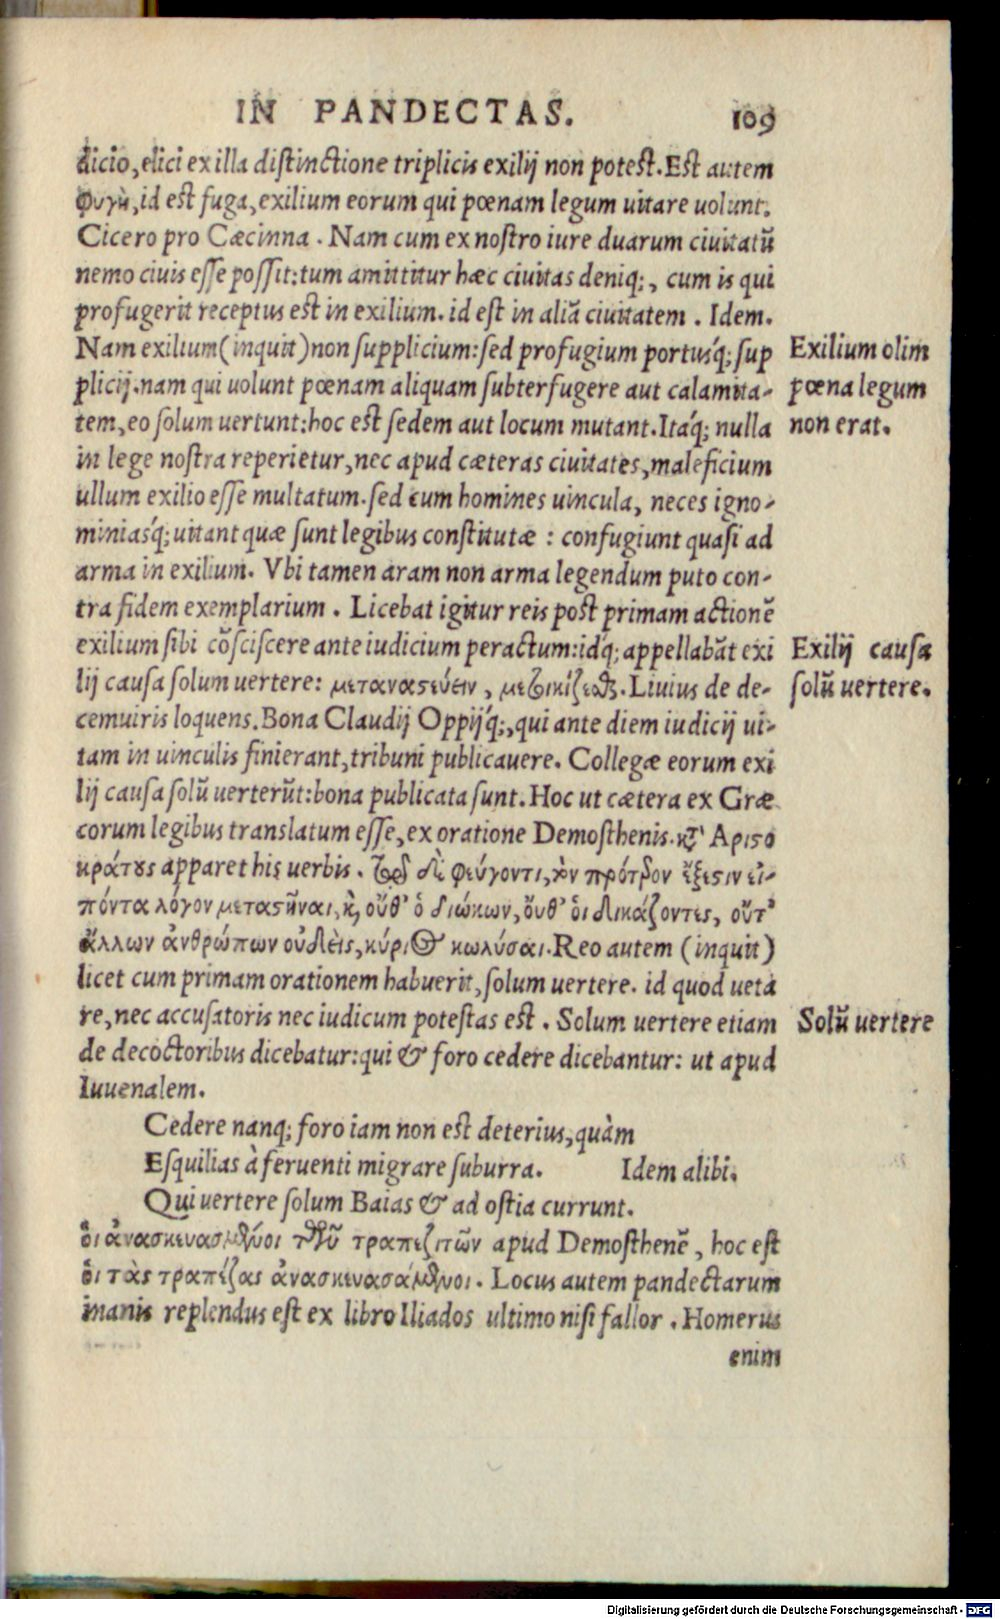 IN PANDECTAS. 109
dicio, elici ex illa distinctione triplicis exilij non potest. Est autem
φυγὴ, id est fuga, exilium eorum qui pœnam legum uitare uolunt.
Cicero pro Cæcinna. Nam cum ex nostro iure duarum ciuitatũ
nemo ciuis esse possit: tum amittitur hæc ciuitas deniq;, cum is qui
profugerit receptus est in exilium. id est in aliã ciuitatem. Idem.
Nam exilium (inquit) non supplicium: sed profugium portusq́; sup
plicij. nam qui uolunt pœnam aliquam subterfugere aut calamita-
tem, eo solum uertunt: hoc est sedem aut locum mutant. Itaq́; nulla
in lege nostra reperietur, nec apud cæteras ciuitates, maleficium
ullum exilio esse multatum. sed cum homines uincula, neces igno-
miniasq́; uitant quæ sunt legibus constitutæ: confugiunt quasi ad
arma in exilium. Vbi tamen aram non arma legendum puto con-
tra fidem exemplarium. Licebat igitur reis post primam actionẽ
exilium sibi cõsciscere ante iudicium peractum: idq́; appellabãt exi
lij causa solum uertere: μεταναστεύειν, μετοικίζεσθαι. Liuius de de-
cemuiris loquens. Bona Claudij Oppijq́;, qui ante diem iudicij ui-
tam in uinculis finierant, tribuni publicauere. Collegæ eorum exi
lij causa solũ uerterũt: bona publicata sunt. Hoc ut cætera ex Græ
corum legibus translatum esse, ex oratione Demosthenis. κτ' Αριστο
κράτους apparet his uerbis. τῷ δὲ φεύγοντι, τὸν πρότερον ἔξεστιν εἰ-
πόντα λόγον μεταστῆναι, κὶ, οὔθ' ὁ διώκων, ὄυθ' ὁι δικάζοντες, οὔτ'
ἄλλων ἀνθρώπων οὐδεὶς, κύριος κωλύσαι. Reo autem (inquit)
licet cum primam orationem habuerit, solum uertere. id quod ueta
re, nec accusatoris nec iudicum potestas est. Solum uertere etiam
de decoctoribus dicebatur: qui & foro cedere dicebantur: ut apud
Iuuenalem.
Cedere nanq; foro iam non est deterius, quàm
Esquilias à feruenti migrare suburra. Idem alibi.
Qui uertere solum Baias & ad ostia currunt.
ὁι ἀνασκευασμένοι τῶν τραπεζιτῶν apud Demosthenẽ, hoc est
ὁι τὰς τραπέζας ἀνασκευασάμενοι. Locus autem pandectarum
inanis replendus est ex libro Iliados ultimo nisi fallor. Homerus
enim
Exilium olim
pœna legum
non erat.
Exilij causa
solũ uertere.
Solũ uertere
Digitalisierung gefördert durch die Deutsche Forschungsgemeinschaft - DFG